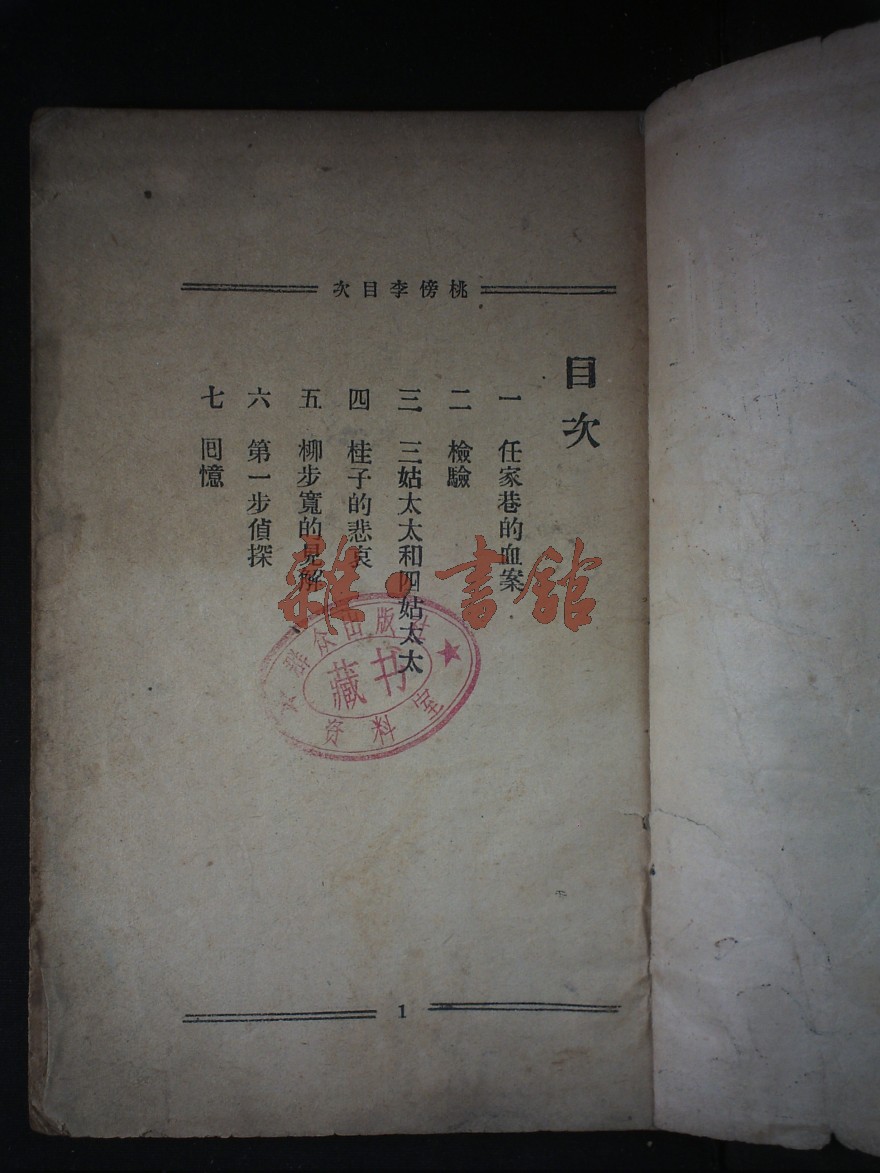 桃傍李目次
目次
一 任家巷的血案
二 檢驗
三 三姑太太和四姑太太
四 桂子的悲哀
五 柳步寬的見解
六 第一步偵探
七 回憶
雜·書館
群众出版社
藏书
资料室
1